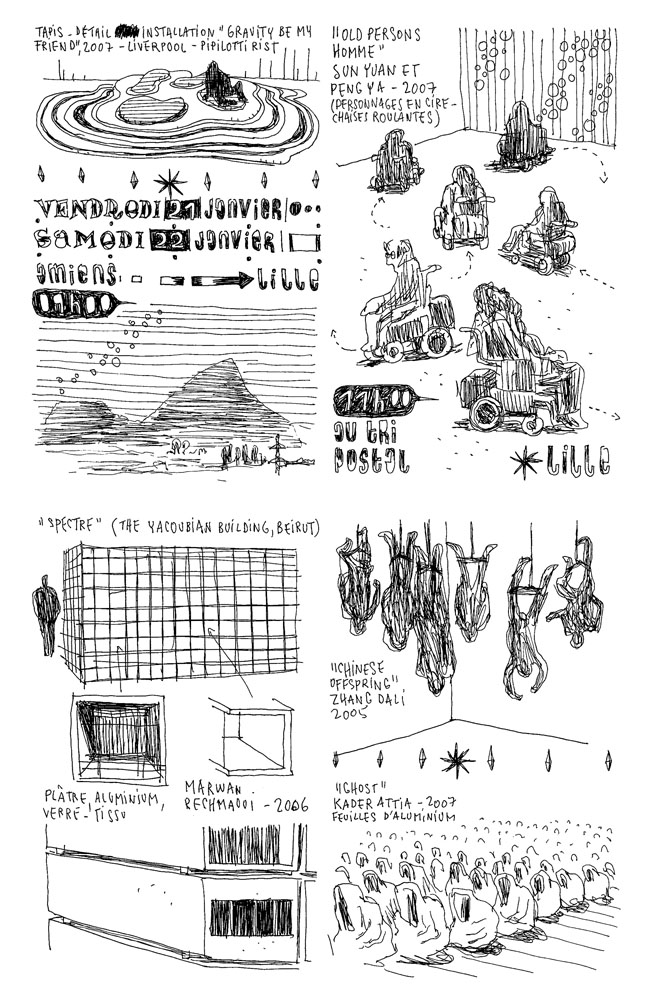 TAPIS - DÉTAIL INSTALLATION "GRAVITY BE MY
FRIEND", 2007 - LIVERPOOL - PIPILOTTI RIST
VENDREDI 21 JANVIER
SAMEDI 22 JANVIER
AMIENS. LILLE
"OLD PERSONS
HOMME"
SUN YUAN ET
PENG YA - 2007
(PERSONNAGES EN CIRE -
CHAISES ROULANTES)
11h00
AU TRI
POSTAL
LILLE
"SPECTRE" (THE YACOUBIAN BUILDING, BEIRUT)
PLÂTRE, ALUMINIUM,
VERRE - TISSU
MARWAN
RECHMAOUI - 2006
"CHINESE
OFFSPRING"
ZHANG DALI
2005
"GHOST"
KADER ATTIA - 2007
FEUILLES D'ALUMINIUM